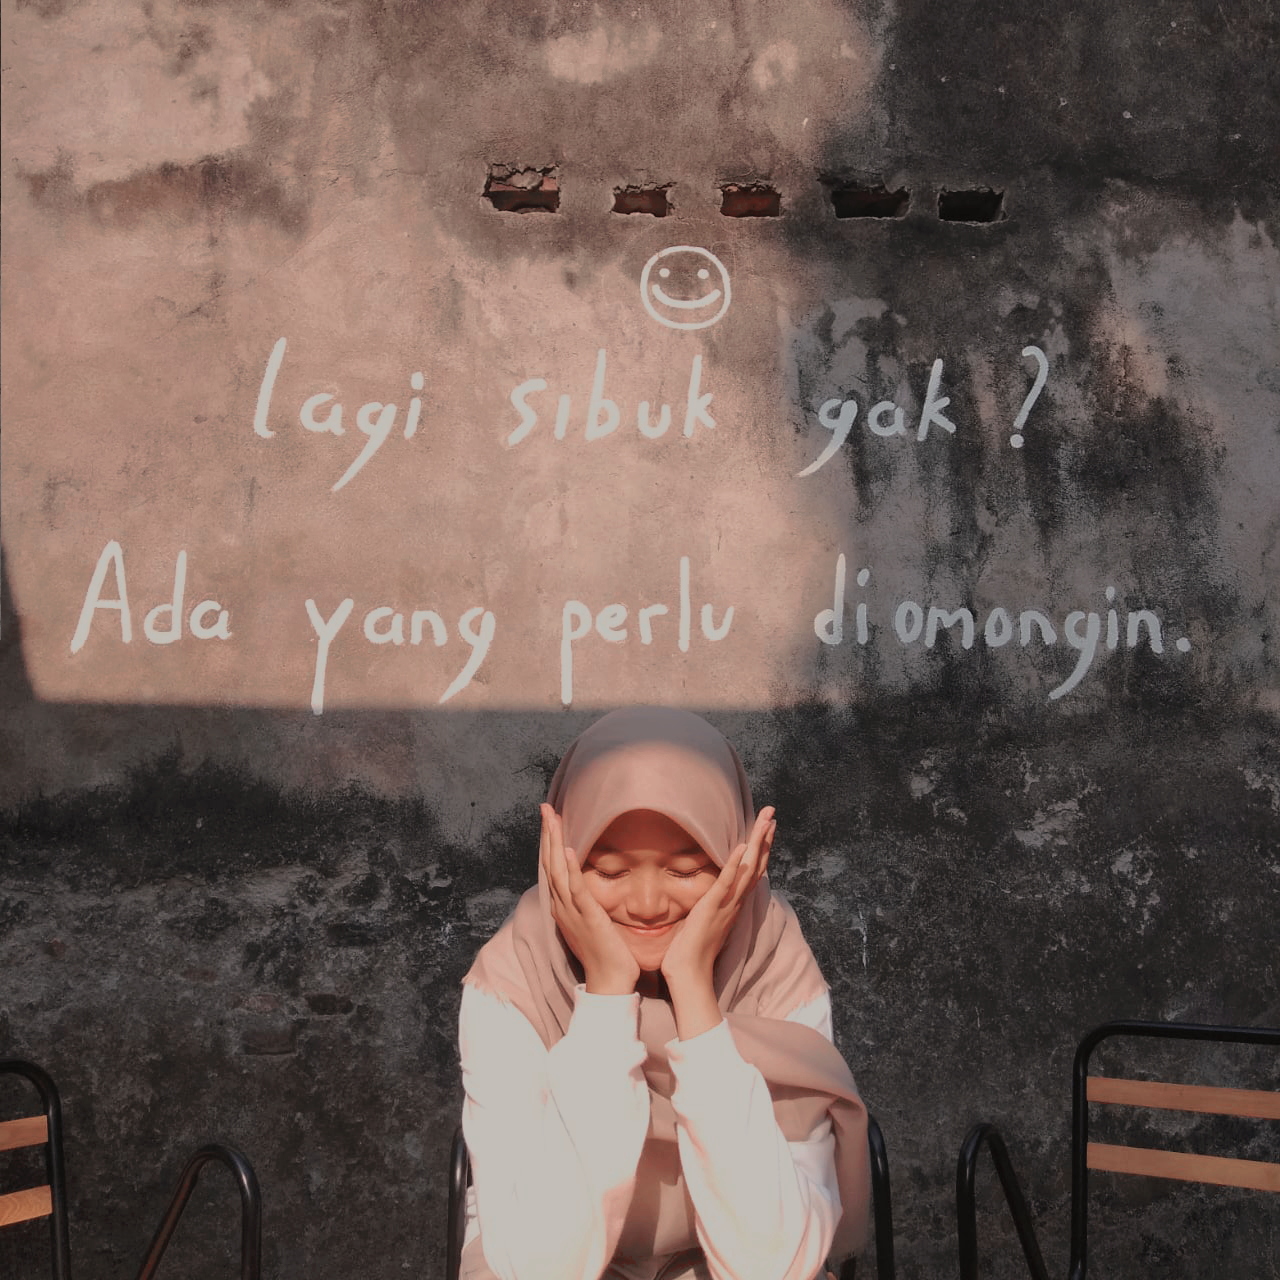 lagi sibuk gak ?
Ada yang perlu diomongin.